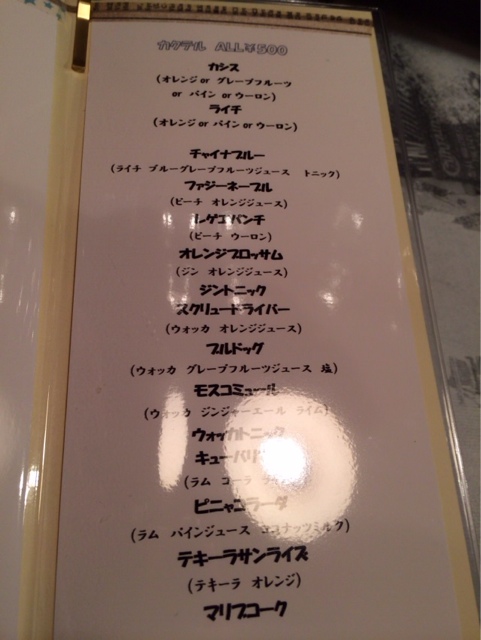 カクテル ALL¥500
カシス
(オレンジ or グレープフルーツ
or パイン or ウーロン)
ライチ
(オレンジ or パイン or ウーロン)
チャイナブルー
(ライチ ブルーグレープフルーツジュース トニック)
ファジーネーブル
(ピーチ オレンジジュース)
レゲエパンチ
(ピーチ ウーロン)
オレンジブロッサム
(ジン オレンジジュース)
ジントニック
スクリュードライバー
(ウォッカ オレンジジュース)
ブルドッグ
(ウォッカ グレープフルーツジュース 塩)
モスコミュール
(ウォッカ ジンジャーエール ライム)
ウォッカトニック
キューバリ
(ラム コーラ
ピニャコラーダ
(ラム パインジュース ココナッツミルク)
テキーラサンライズ
(テキーラ オレンジ)
マリブコーク